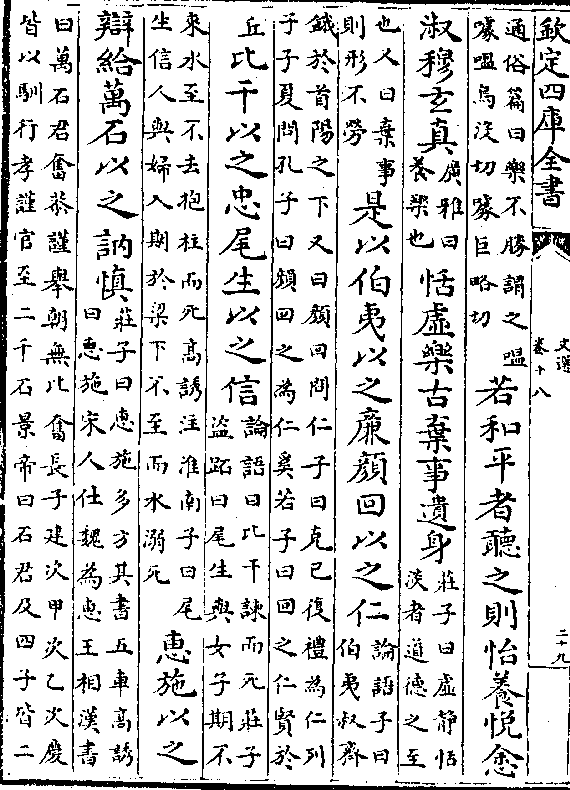 欽定四庫全書
文選
卷十八
二十九
通俗篇曰樂不勝謂之嗢
噱嗢烏沒切噱巨略切
若和平者聽之則怡養悅悆
淑穆玄真
廣雅曰
養樂也
恬虛樂古棄事遺身
莊子曰虛静恬
淡者道德之至
也人曰棄事
則形不勞
是以伯夷以之廉顔回以之仁
論語子曰
伯夷叔齊
餓於首陽之下又曰顔回問仁子曰克已復禮為仁列
子子夏問孔子曰顔回之為仁奚若子曰回之仁賢於
丘
比干以之忠尾生以之信
論語曰比干諫而死莊子
盜跖曰尾生與女子期不
來水至不去抱柱而死高誘注淮南子曰尾
生信人與婦人期於梁下不至而水溺死
惠施以之
辯給萬石以之訥慎
莊子曰惠施多方其書五車高誘
曰惠施宋人仕魏為惠王相漢書
曰萬石君奮恭謹舉朝無比奮長子建次甲次乙次慶
皆以馴行孝謹官至二千石景帝曰石君及四子皆二